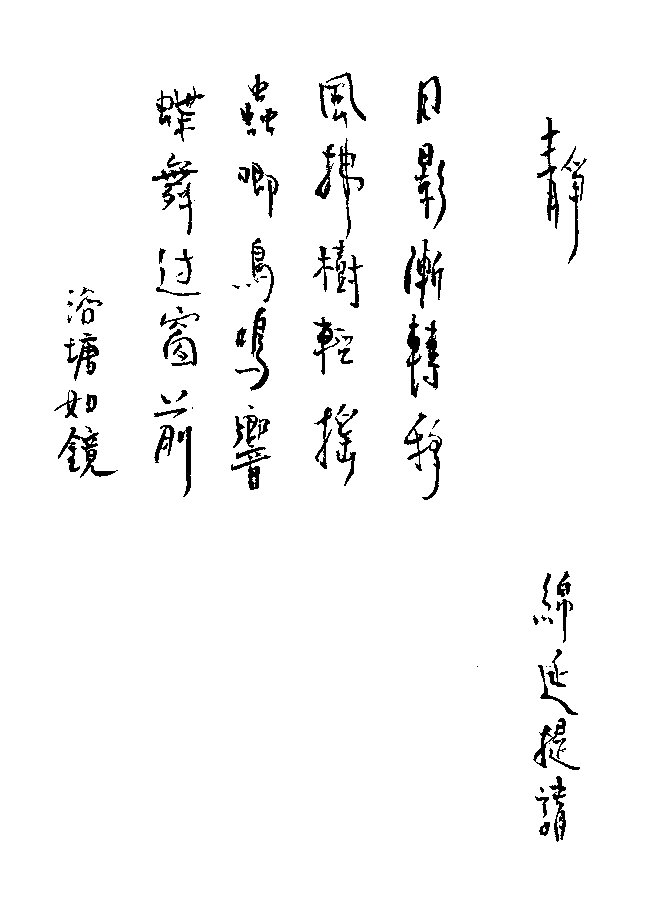 靜
綿延提請
日影漸轉移
風拂樹輕搖
蟲唧鳥鳴響
蝶舞过窗前
浴塘如鏡